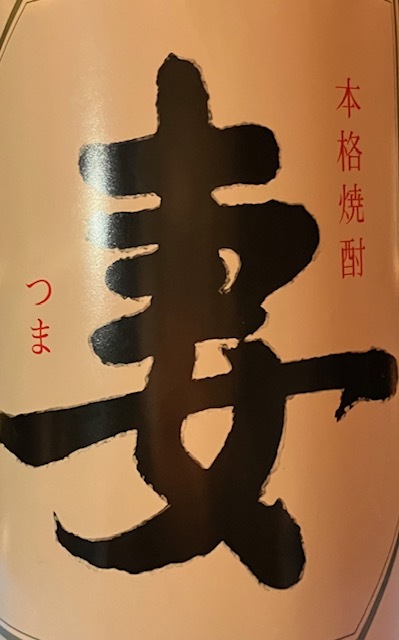 本格焼酎
妻
つま